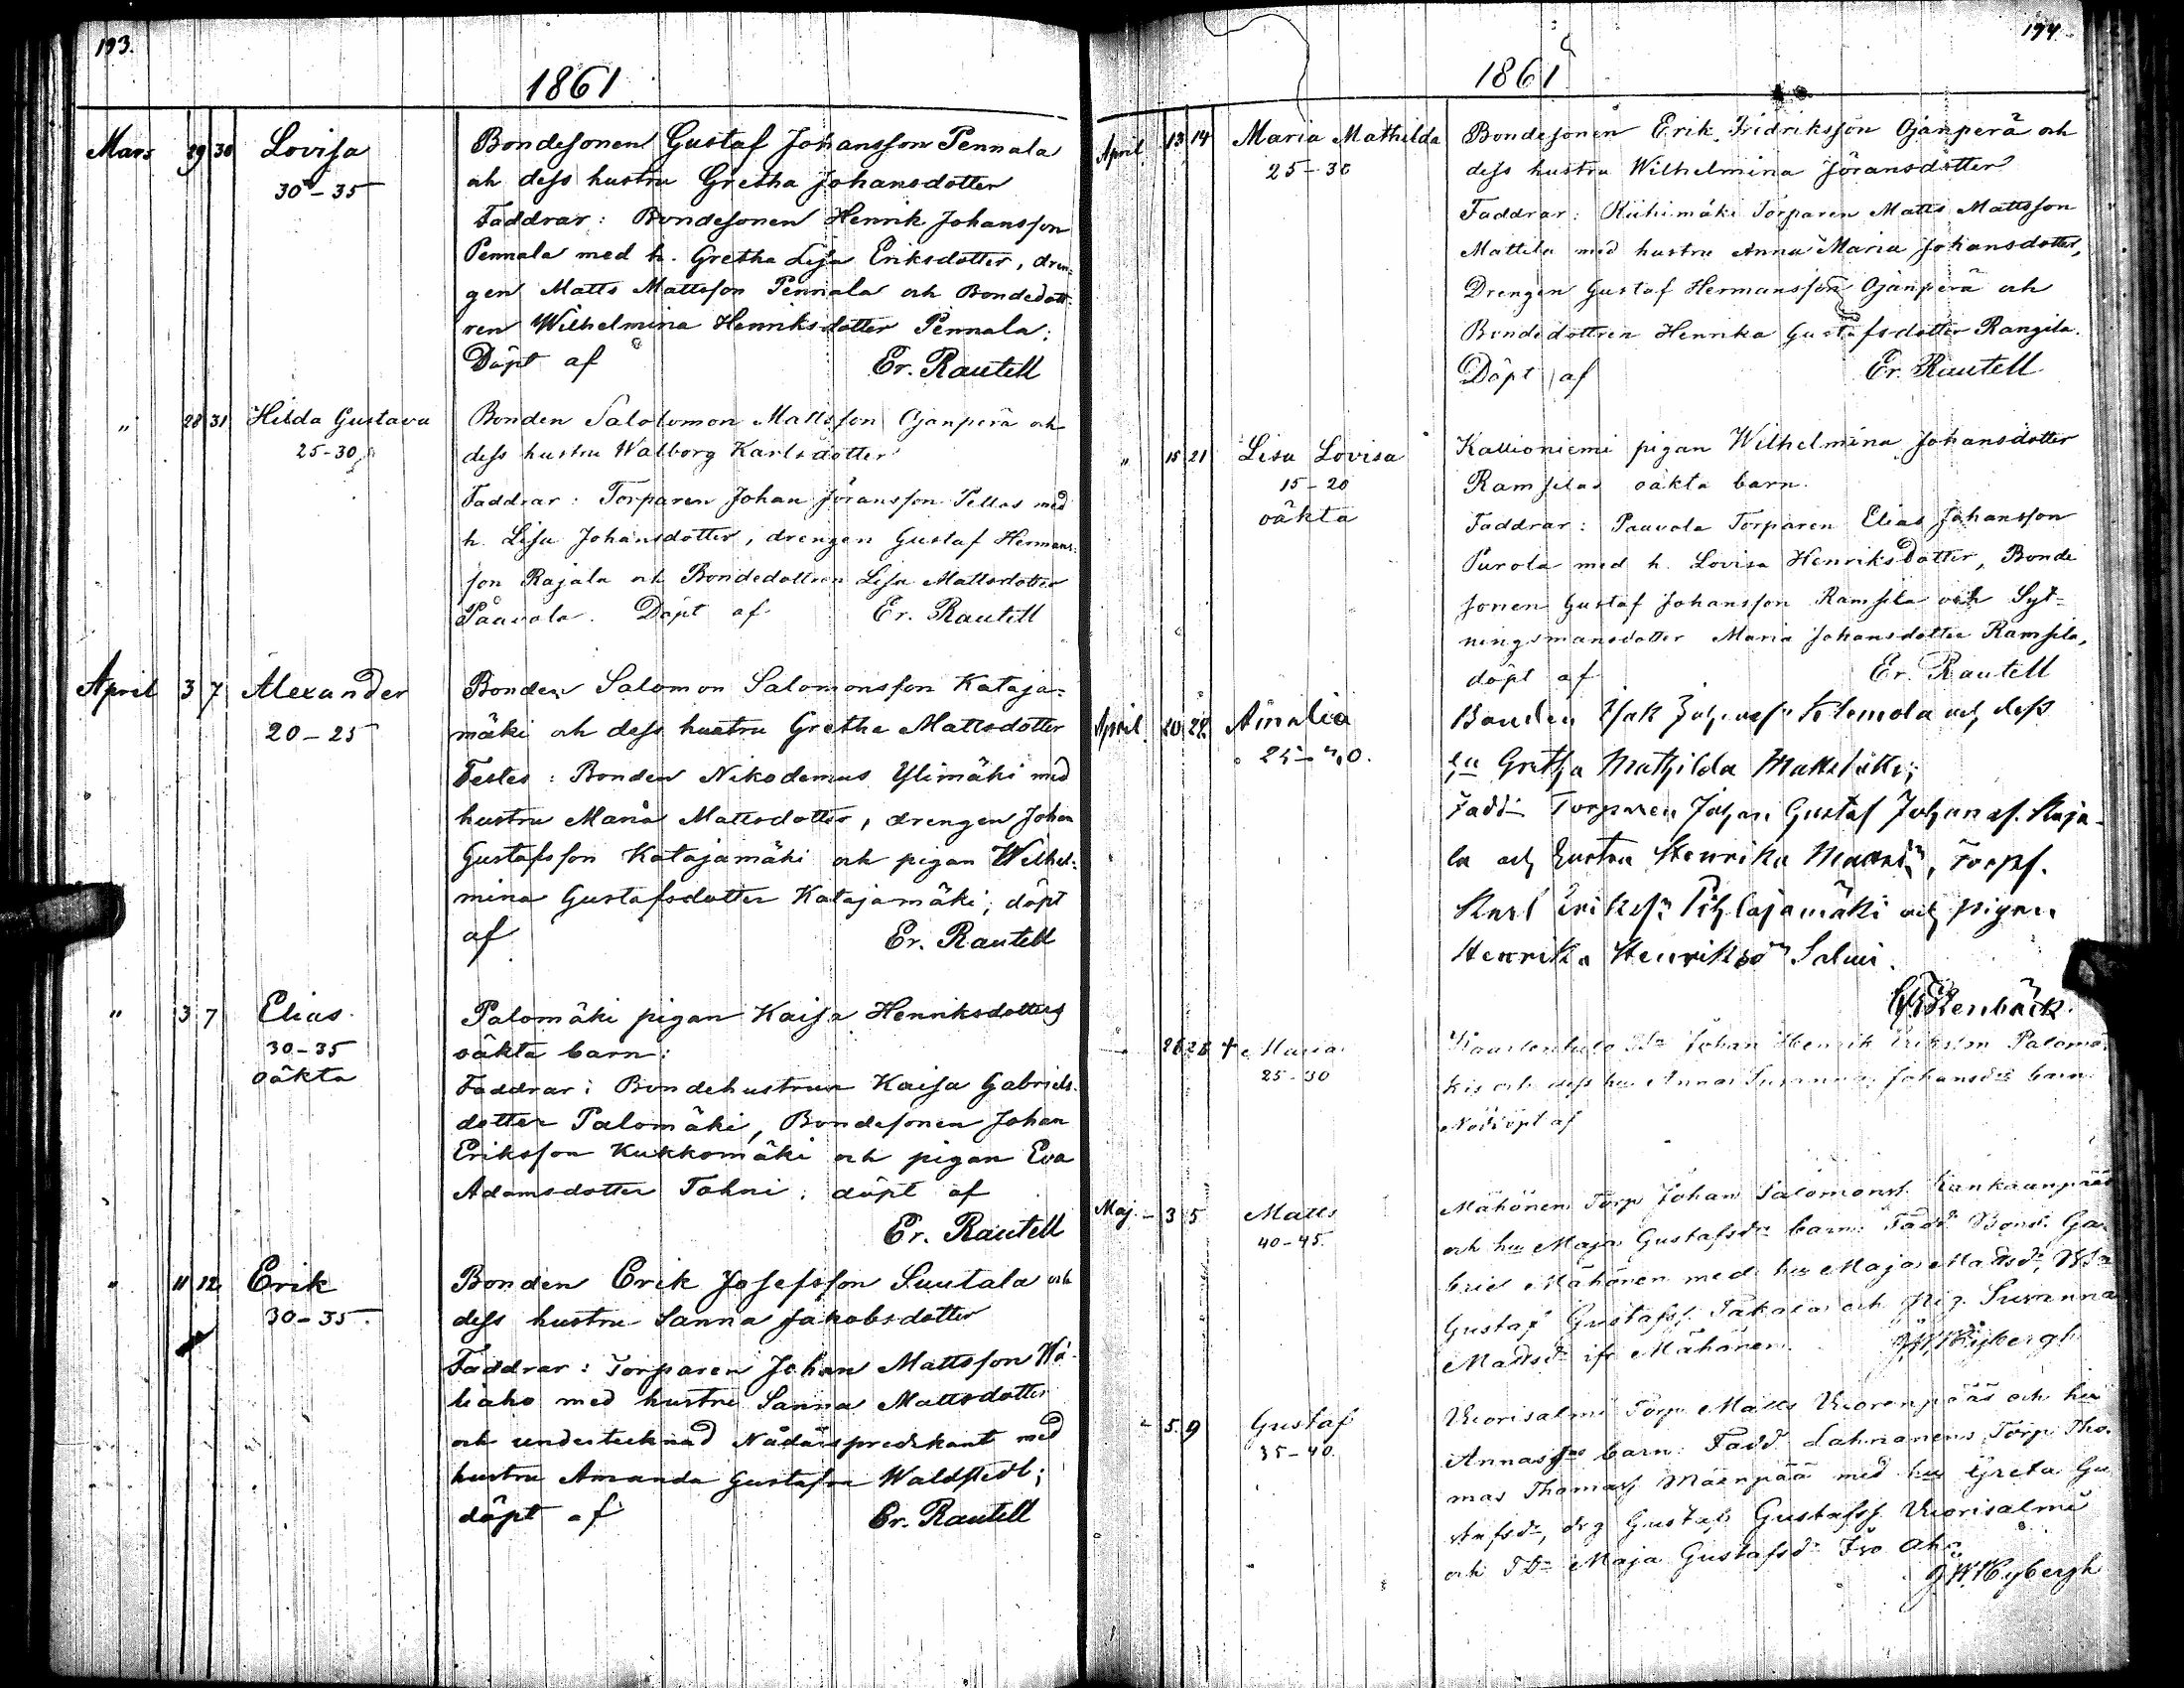 193.
1861
Mars 29 30 Lovisa
30-35
Bondesonen Gustaf Johansson Pennala
och dess hustru Gretha Johansdotter
Faddrar: Bondesonen Henrik Johansson
Pennala med h. Gretha Lisa Eriksdotter, dren=
gen Matts Mattsson Pennala och Bondedott=
ren Wilhelmina Henriksdotter Pennala:
Döpt af Er. Rautell
" 28 31 Hilda Gustava
25-30
Bonden Salolomon Mattsson Ojanperä och
dess hustru Walborg Karlsdotter
Faddrar: Torparen Johan Jöransson Pellas med
h. Lisa Johansdotter, drengen Gustaf Hermans=
son Rajala och Bondedottren Lisa Mattsdotter
Paavola. Döpt af Er. Rautell
April 3 7 Alexander
20-25
Bonden Salomon Salomonsson Kataja=
mäki och dess hustru Gretha Mattsdotter
Testes: Bonden Nikodemus Ylimäki med
hustru Maria Mattsdotter, drengen Johan
Gustafsson Katajamäki och pigan Wilhel=
mina Gustafsdotter Katajamäki; döpt
af Er. Rautell
" 3 7 Elias
30-35
oäkta
Palomäki pigan Kaisa Henriksdotters
oäkta barn:
Faddrar: Bondehustrun Kaisa Gabriels=
dotter Palomäki, Bondesonen Johan
Eriksson Kukkomäki och pigan Eva
Adamsdotter Tohni; döpt af
Er. Rautell
" 11 12 Erik
30-35.
Bonden Erik Josefsson Suutala och
dess hustru Sanna Jakobsdotter
Faddrar: Torparen Johan Mattsson
med hustru Sanna Mattsdotter
och undertecknad Nådårspredikant med
hustru Amanda Gustafva Waldstedt;
döpt af Er. Rautell
194
1861
April 13 14 Maria Mathilda
25-30
Bondesonen Erik Fridriksson Ojanperä och
dess hustru Wilhelmina Jöransdotter
Faddrar: Riihimäki Torparen Matts Mattsson
Mattila med hustru Anna Maria Johansdotter,
Drengen Gustaf Hermansson Ojanperä och
Bondedottren Henrika Gustafsdotter Rangila.
Döpt af Er. Rautell
" 15 21 Lisa Lovisa
15-20
oäkta
Kallioniemi pigan Wilhelmina Johansdotter
Ramsilas oäkta barn.
Faddrar: Paavola Torparen Elias Johansson
Purola med h. Lovisa Henriksdotter, Bonde
sonen Gustaf Johansson Ramsila och Syt=
ningsmansdotter Maria Johansdotter Ramsila,
döpt af Er. Rautell
April 20 22 Amalia
Bonden Isak och dess
Gretha Mathilda
Fadd. Torparen Johan Gustaf Johans.
la och hustru Henrika
Karl Pihlajamäki och pigan
Henrika Salmi.
26 28 + Maria
25-30
Johan Henrik Eriksson Palomä
kis och dess hu Anna Susanna Johansd. barn
Nöddöpt af
Maj. - 3 5 Matts
40-45.
Mähönen Torp Johan Salomons. Kankaanpää
och hu Maja Gustafsd. barn: Fadd. Bond. Ga
briel Mähönen med hu Maja Mattsd.
Gustaf Gustafss. och pig. Susanna
Mattsd. ifr. Mähönen.
- 5 9 Gustaf
35-40.
Vuorisalmi Torp. Matts Vuorenpääs och hu
Annas barn: Fadd. Lahnanens Torp. Tho.
mas Thomass. Mäenpää med hu Greta Gu
stafsd., drg Gustaf Gustafss. Vuorisalmi
och Maja Gustafsd.